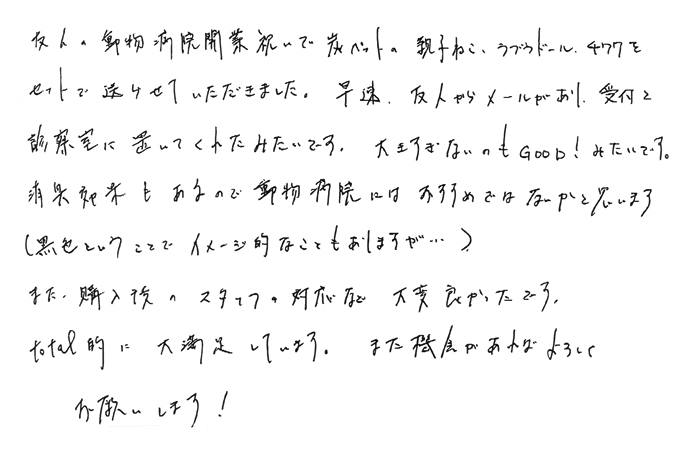 友人の動物病院開業祝いで炭ペットの親子ねこ、ラブラドール、チワワを
セットで送らせていただきました。早速、友人からメールがあり、受付と
診察室に置いてくれたみたいです。大きすぎないのもGOOD!みたいです。
消臭効果もあるので動物病院にはおすすめではないかと思います
(黒色ということでイメージ的なこともありますが…)
また、購入後のスタッフの対応など大変良かったです。
total的に大満足しています。また機会があればよろしく
お願いします!